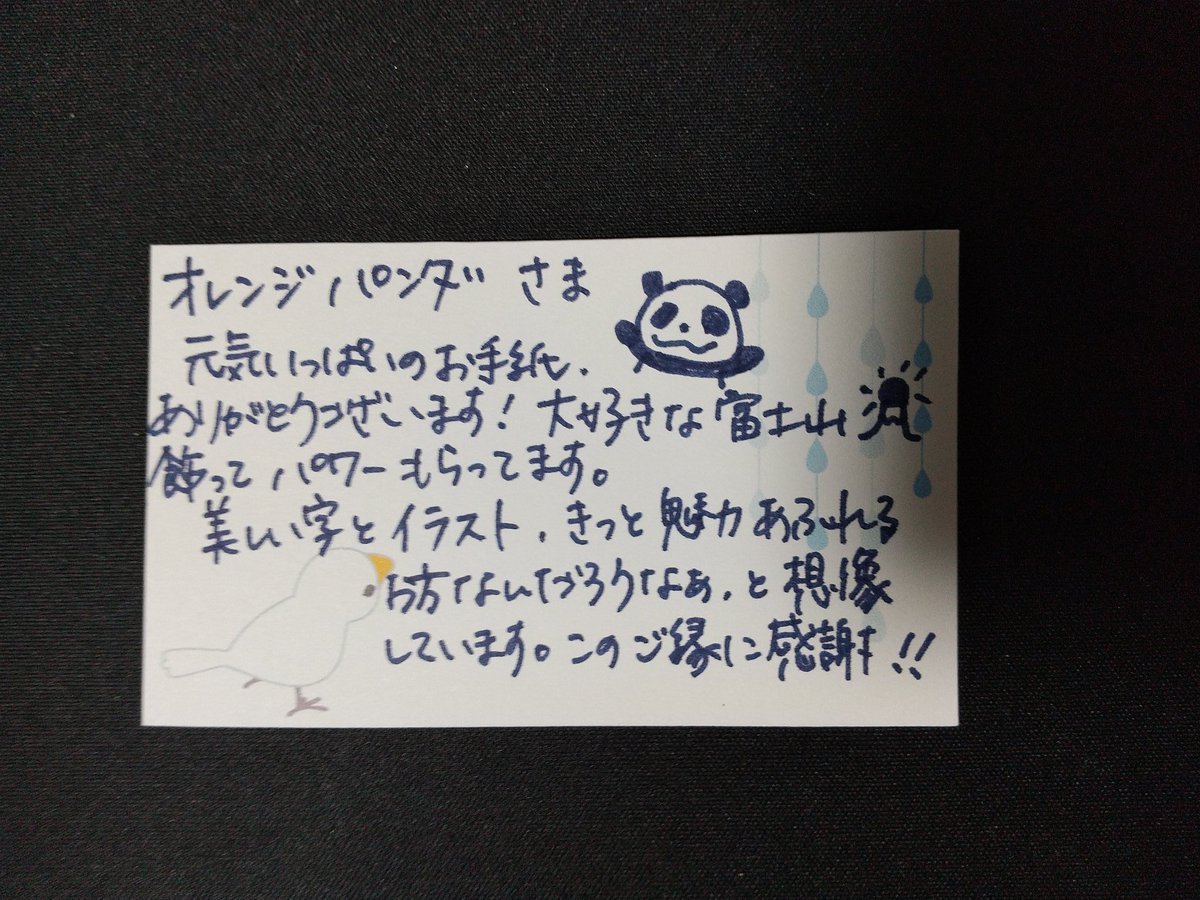 オレンジパンダ さま
元気いっぱいのお手紙、
ありがとうございます！ 大好きな富士山
飾って パワーもらってます。
美しい字とイラスト、きっと魅力あふれる
お方なんだろうなぁ、と想像
しています。このご縁に感謝!!